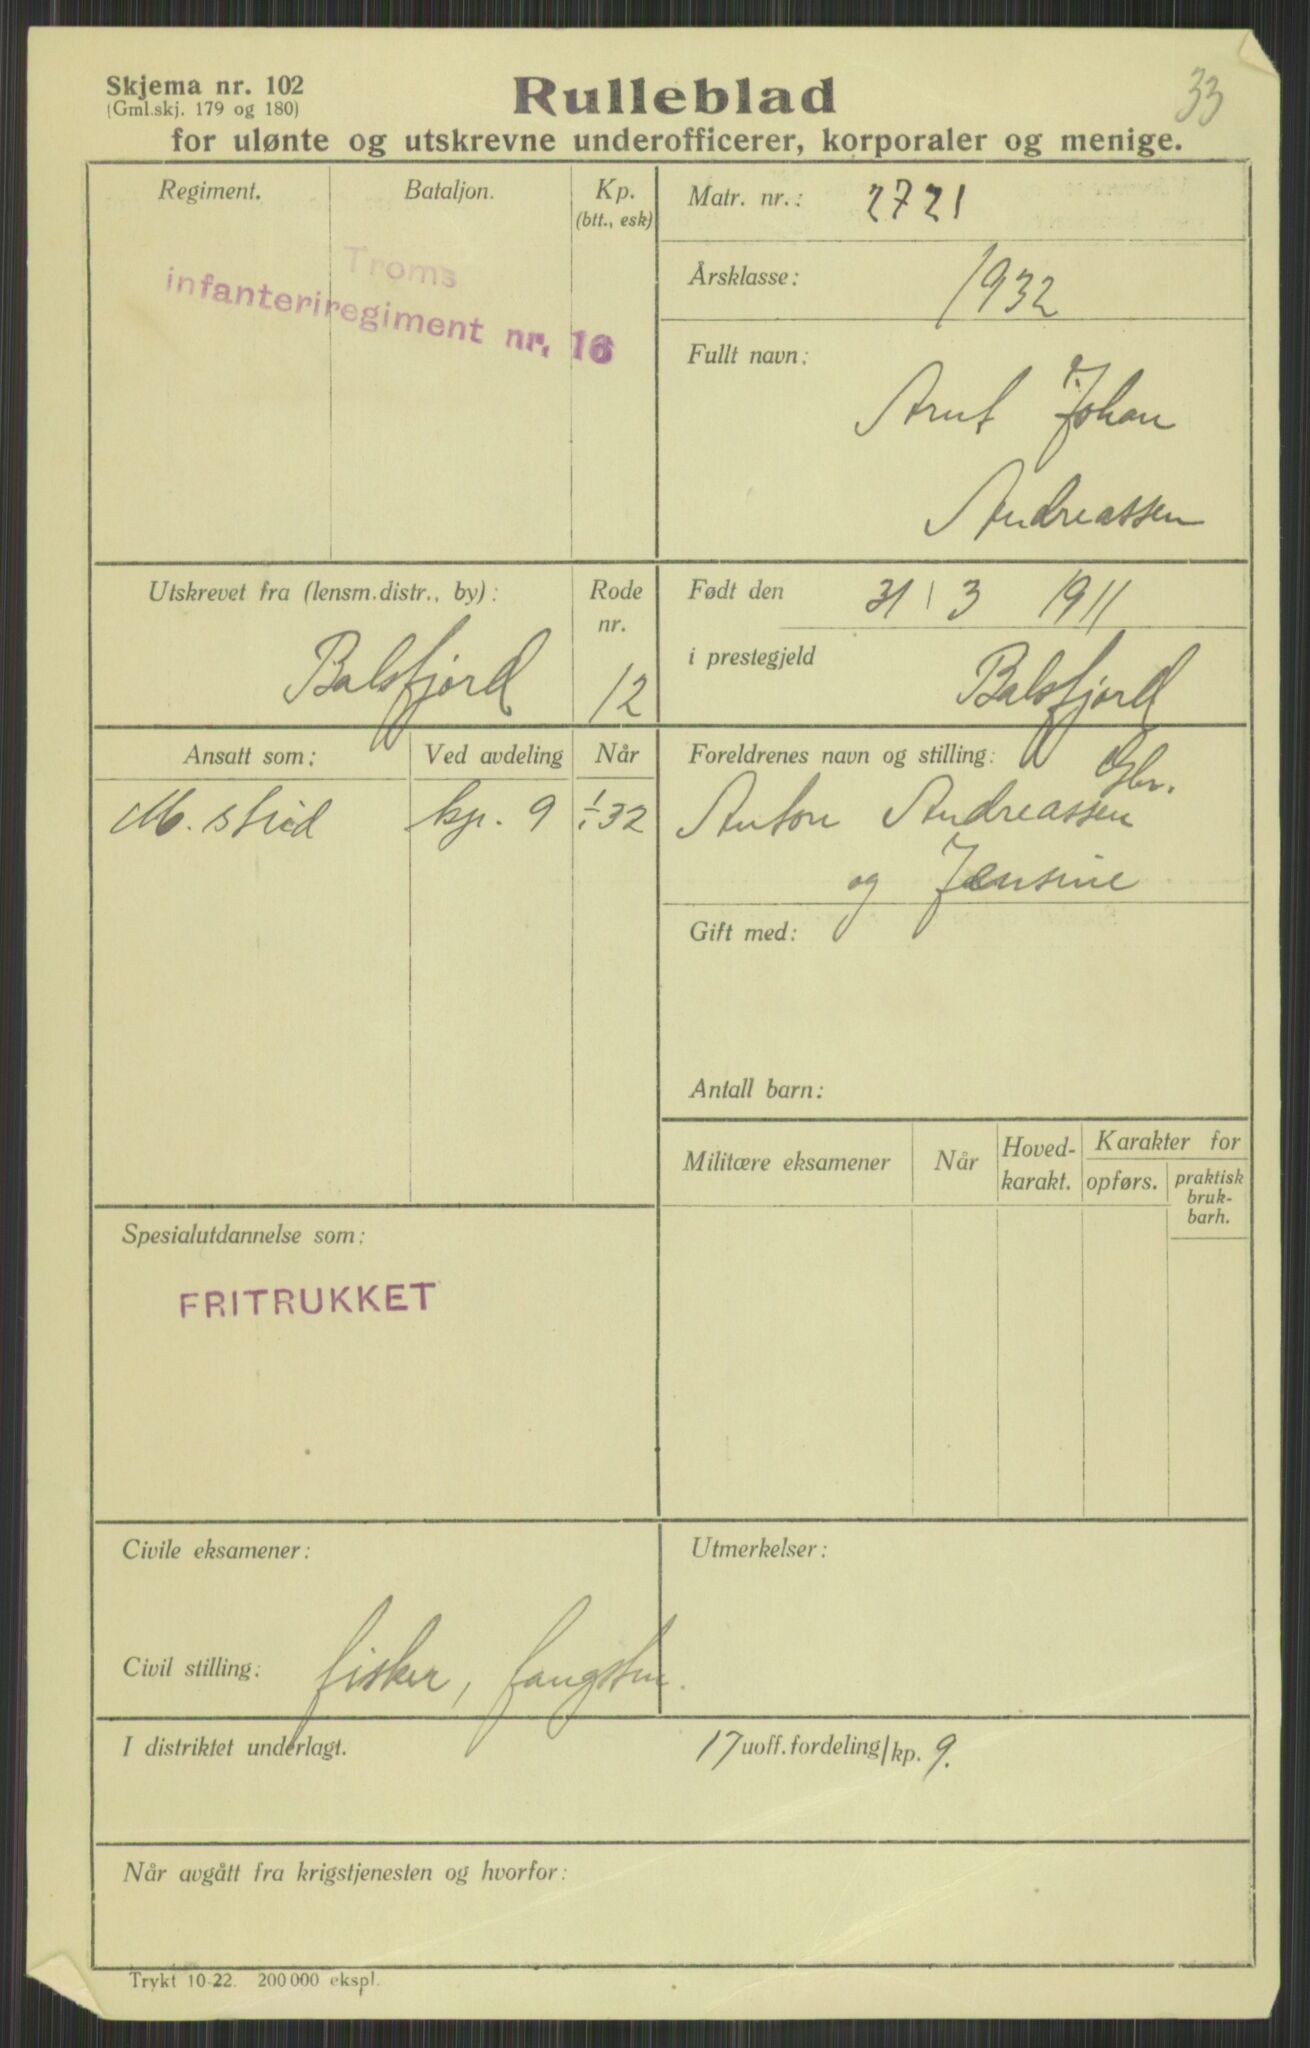 33
Skjema nr. 102
(Gml.skj. 179 og 180)
Rulleblad
for ulønte og utskrevne underofficerer, korporaler og menige.
Regiment.
Bataljon.
Kp.
(btt., esk)
Troms
infanteriregiment nr. 16
Matr. nr.: 2721
Årsklasse: 1932
Fullt navn:
Arnt Johan
Andreassen
Utskrevet fra (lensm.distr., by):
Balsfjord
Rode
nr.
12
Født den 31 / 3 1911
i prestegjeld Balsfjord
Ansatt som:
Ved avdeling
Når
M. strid
kp. 9
1/1 32
Foreldrenes navn og stilling:
Gbr.
Anton Andreassen
og Jensine
Gift med:
Antall barn:
Militære eksamener
Når
Hoved-
karakt.
Karakter for
opførs.
praktisk
bruk-
barh.
Spesialutdannelse som:
FRITRUKKET
Civile eksamener:
Civil stilling: fisker, fangstm.
Utmerkelser:
I distriktet underlagt.
17 uoff.fordeling/kp. 9.
Når avgått fra krigstjenesten og hvorfor:
Trykt 10-22. 200 000 ekspl.